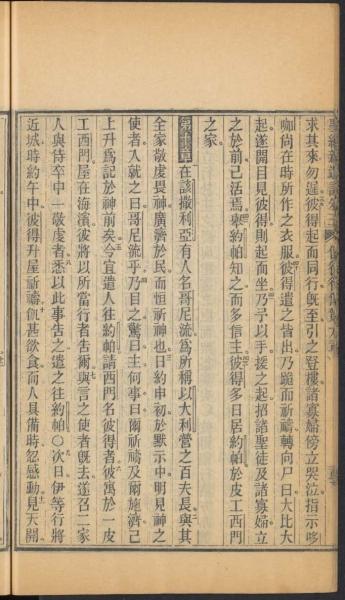 求其來勿遲彼得起而同行旣至引之登樓諸寡婦傍立哭泣指示哆
咖尚在時所作之衣服彼得遣之皆出乃跪而祈禱轉向尸曰大比大
起遂開目見彼得則起而坐乃予以手援之起招諸聖徒及諸寡婦立
之於前已活焉擧約帕知之而多信主彼得多日居約帕於皮工西門
之家
第十章在該撒利亞有人名哥尼流爲所稱以大利營之百夫長與其
全家敬虔畏神廣濟於民而恒祈神也日約申初於默示中明見神之
使者入就之曰哥尼流乎乃目之驚曰主何事曰爾祈禱及爾施濟已
上升爲記於神前矣今宜遣人往約帕請西門名彼得者彼寓於一皮
工西門屋在海濱彼將以所當行者告爾與言之使者旣去遂召二家
人與侍卒中一敬虔者悉以此事告之遣之往約帕○次日伊等行將
近城時約午中彼得升屋祈禱飢甚欲食而人具備時忽感動見天開